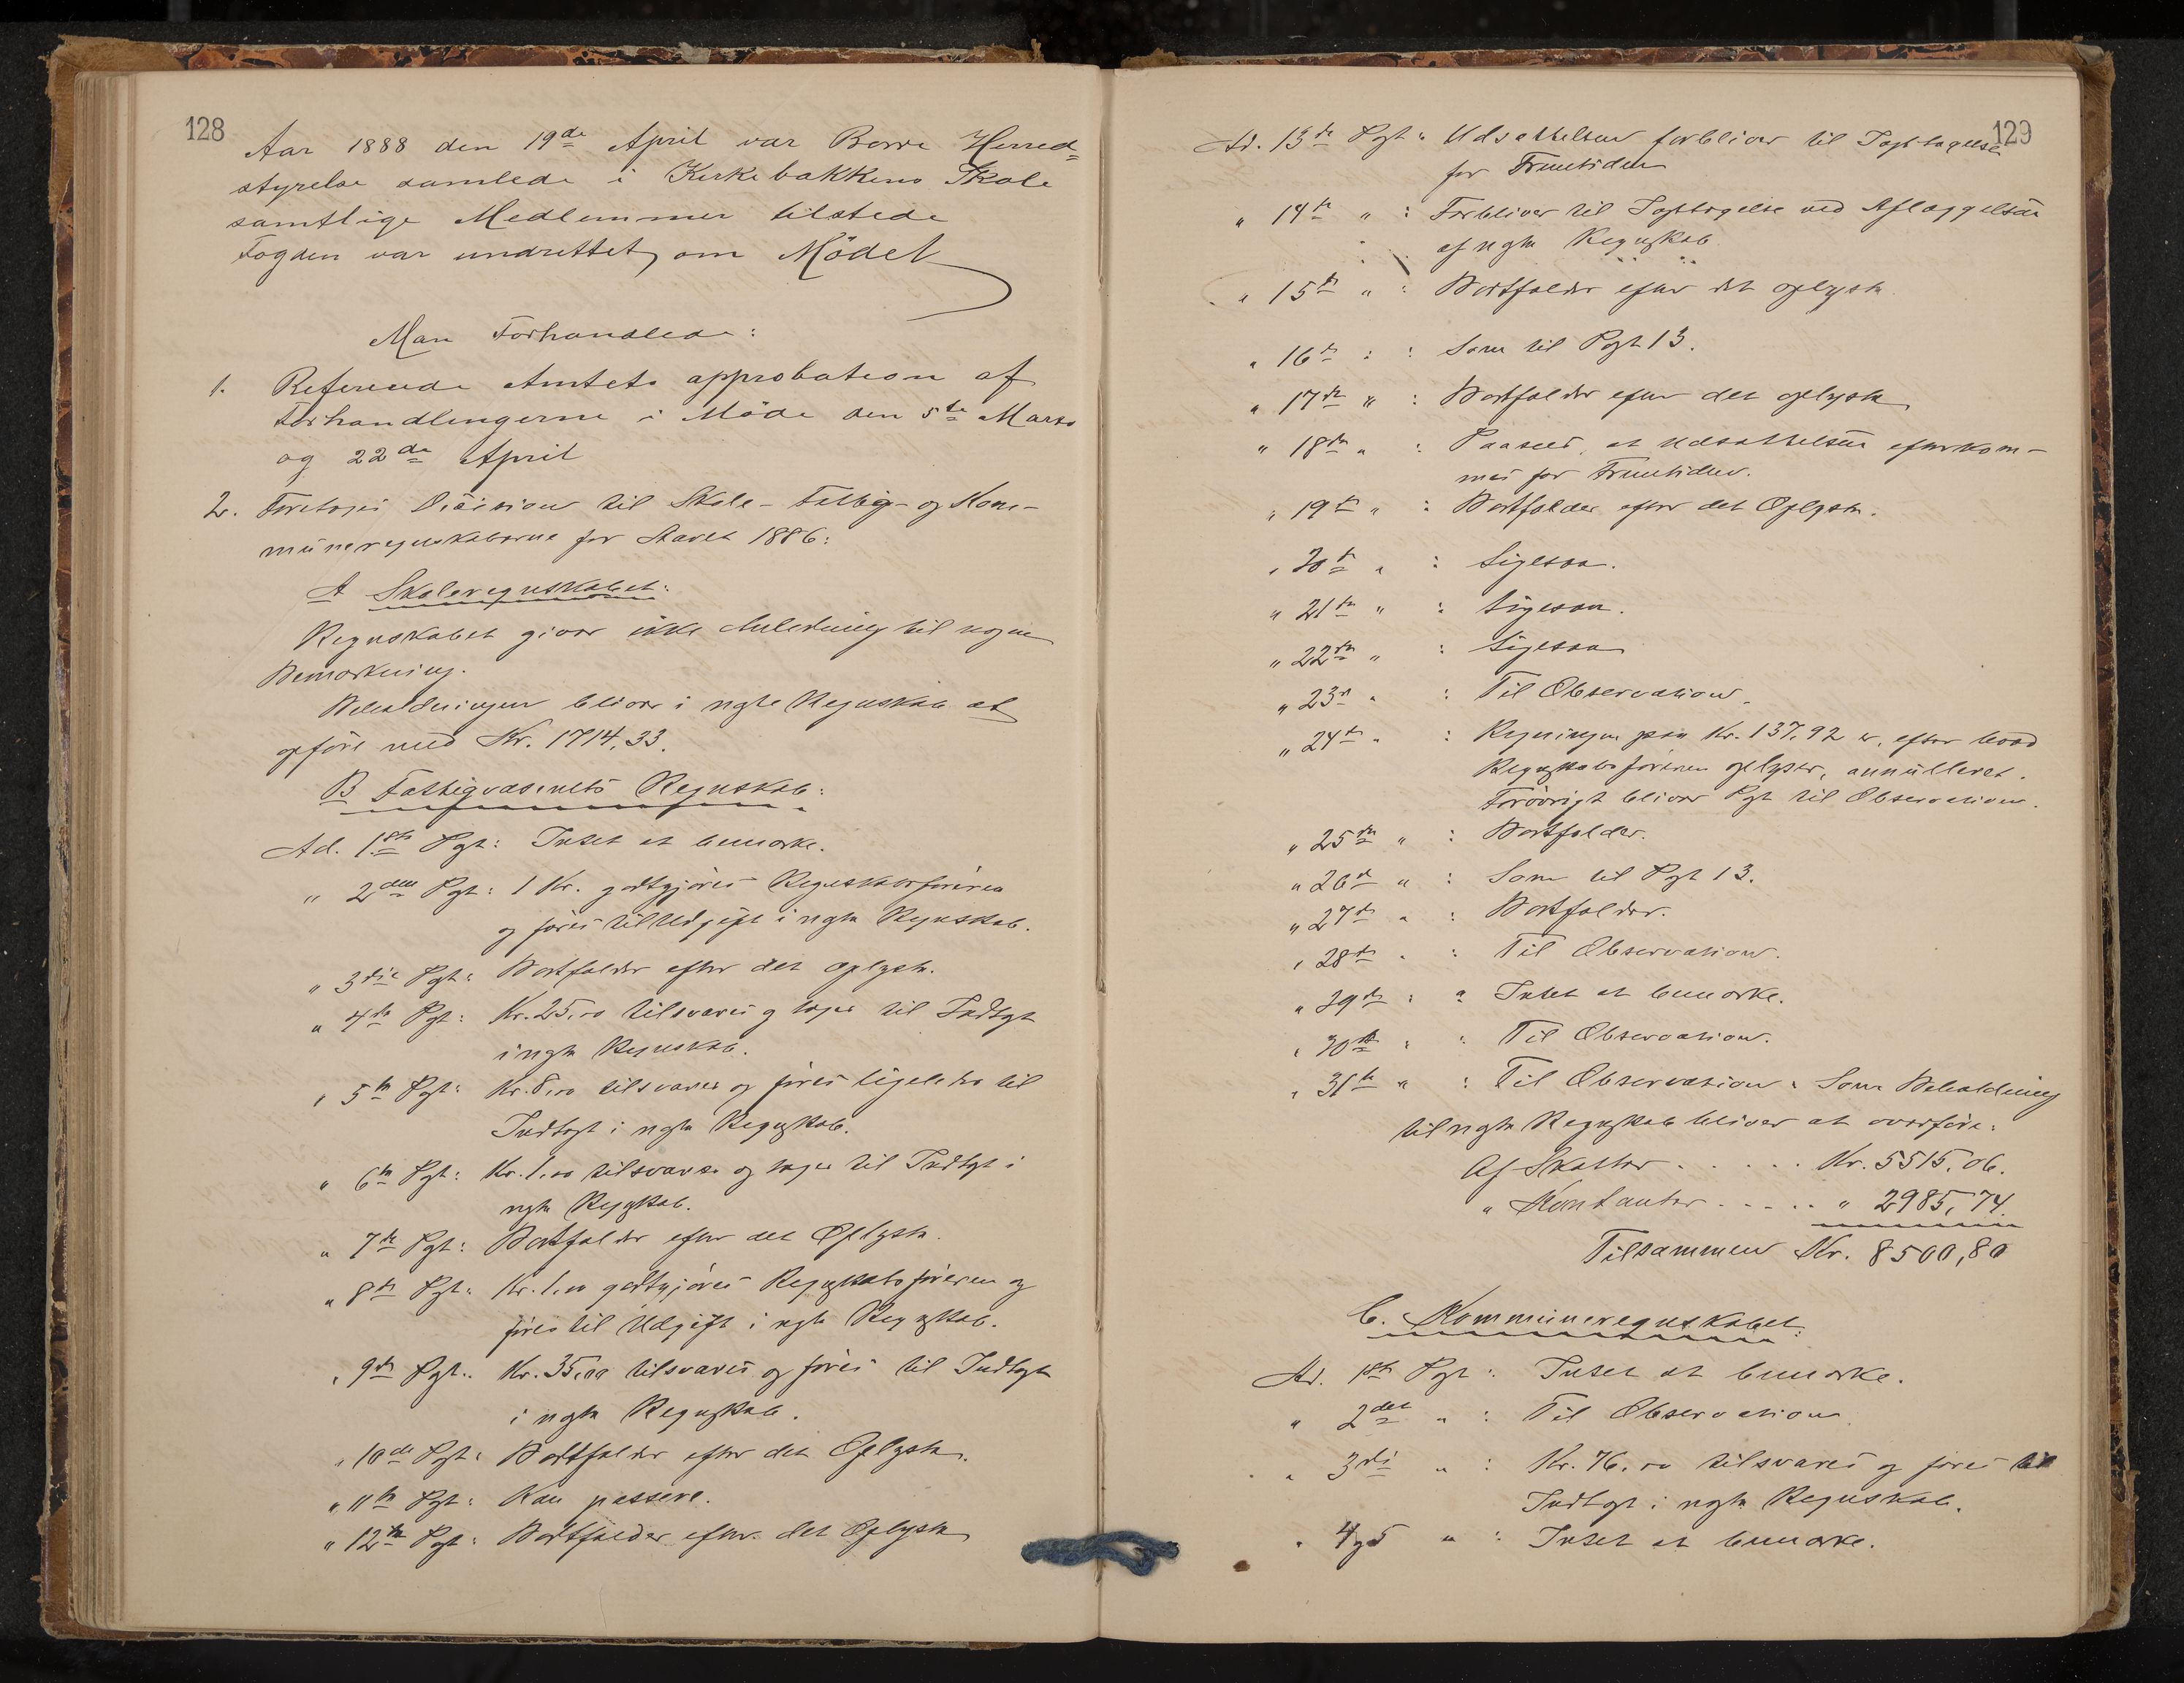 128
Aar 1888 den 19de April var Borre Herred=
styrelse samlede i Kirkebakkens Skole
samtlige Medlemmer tilstede
Fogden var undrettet om Mödet
Man Forhandlede:
1. Refererede Amtets approbation af
Forhandlingerne i Möde den 5te Marts
og 22de April
2. Foretoges Decision til Skole- Fattig- og Kom-
müneregnskaberne for Aaret 1886:
A Skoleregnskabet:
Regnskabet giver ikke Anledning til nogen
Bemærkning.
Beholdningen bliver i nyste Regnskab at
opföre med Kr. 1714,33.
B Fattigvæsenets Regnskab:
Ad. 1ste Pgt: Intet at bemærke.
" 2den Pgt: 1 Kr. godtgjöres Regnskabsföreren
og föres til Udgift i nyste Regnskab.
" 3die Pgt: Bortfalder efter det oplyste.
" 4de Pgt: Kr. 25,00 tilsvares og tages til Indtægt
i nyste Regnskab.
" 5te Pgt: Kr. 8,00 tilsvares og föres ligeledes til
Indtægt i nyste Regnskab.
" 6te Pgt: Kr. 1,00 tilsvares og tages til Indtægt i
nyste Regnskab.
" 7de Pgt: Bortfalder efter det Oplyste.
" 8de Pgt: Kr. 1,00 godtgjöres Regnskabsföreren og
föres til Udgift i nyste Regnskab.
" 9de Pgt: Kr. 35,00 tilsvares og föres til Indtægt
i nyste Regnskab.
" 10de Pgt: Bortfalder efter det Oplyste.
" 11te Pgt: Kan passere.
" 12te Pgt: Bortfalder efter det Oplyste
129
Ad. 13de Pgt: Udsættelsen forbliver til Iagttagelse
for Fremtiden
" 14de " : Forbliver til Iagttagelse ved Aflæggelsen
af nyste Regnskab
" 15de " : Bortfalder efter det oplyste.
" 16de : : Som til Pgt 13.
" 17de " : Bortfalder efter det oplyste
" 18de " : Paasees, at Udsættelsen efterkom-
mes for Fremtiden.
" 19de " : Bortfalder efter det Oplyste.
" 20de " : Ligesaa.
" 21de " : Ligesaa.
" 22de " : Ligesaa
" 23de " : Til Observation.
" 24de " : Regningen paa Kr. 137,92 er, efter hvad
Regnskabsföreren oplyser, annülleret.
Forövrigt bliver Pgt til Observation.
" 25de " : Bortfalder.
" 26de " : Som til Pgt 13.
" 27de " : Bortfalder.
" 28de " : Til Observation.
" 29de : : Intet at bemærke.
" 30te : : Til Observation.
" 31te " : Til Observation: Som Beholdning
til nyste Regnskab bliver at overföre:
Af Skatter . . . . . Kr. 5515,06.
" Kontanter . . . . . " 2985,74.
Tilsammen Kr. 8500,80
C. Kommüneregnskabet:
Ad. 1ste Pgt : Intet at bemærke.
" 2det " : Til Observation.
" 3die " : Kr. 76,00 tilsvares og föres til
Indtægt i nyste Regnskab.
" 4 og 5 " : Intet at bemærke.